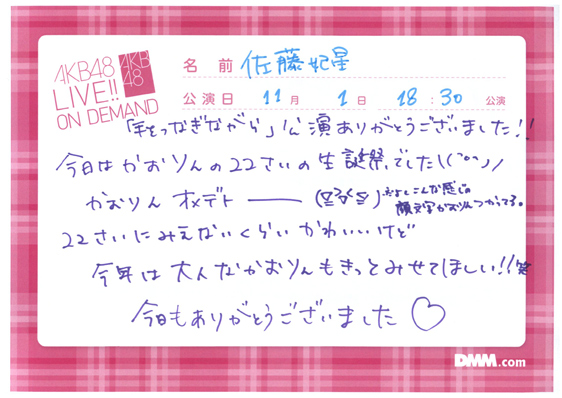 AKB48
LIVE!!
ON DEMAND
AKB
48
名 前 佐藤妃星
公演日 11月 1日 18:30 公演
「手をつなぎながら」公演ありがとうございました!!
今日はかおりんの22さいの生誕祭でした\(^o^)/
かおりん オメデトーーー
※よくこんな感じの
顔文字かおりんつかってる。
22さいにみえないくらいかわいいけど
今年は大人なかおりんもきっとみせてほしい!!笑
今日もありがとうございました♡
DMM.com